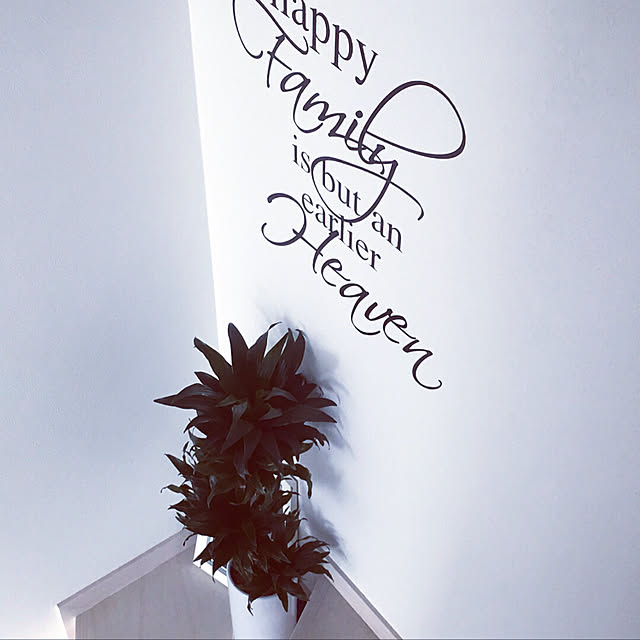 happy
Family
is but an
earlier
Heaven